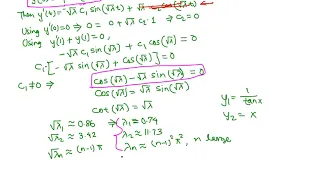 Then y'(t) = -√λ c₁ sin(√λt) + √λ cos(√λt)
Using y'(0)=0 ⇒ 0 = 0 + √λ c₂·1 ⇒ c₂=0
Using y'(1) + y(1) = 0,
-√λ c₁ sin(√λ) + c₁ cos(√λ) = 0
c₁[-√λ sin(√λ) + cos(√λ)] = 0
c₁≠0 ⇒ cos(√λ) - √λ sin(√λ) = 0
cos(√λ) = √λ sin(√λ)
cot(√λ) = √λ
y₁ = 1/tanx
y₂ = x
√λ₁ ≈ 0.86 ⇒ λ₁ ≈ 0.74
√λ₂ ≈ 3.42 λ₂ ≈ 11.73
√λn ≈ (n-1)π λn ≈ (n-1)²π², n large